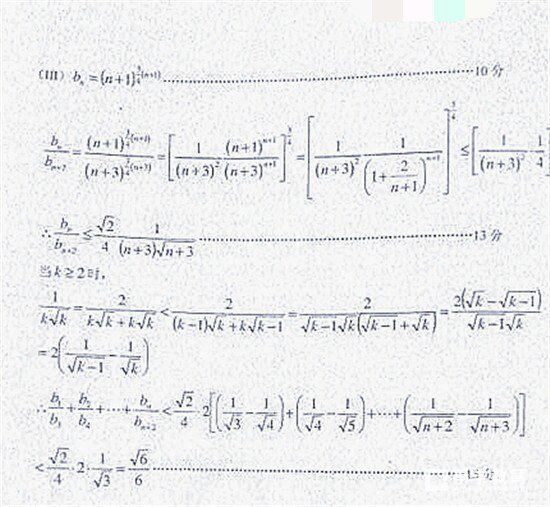 (III) b_n = (n+1)^{\frac{3}{4}(n+1)} ……………………………10分
\frac{b_n}{b_{n+2}} = \frac{(n+1)^{\frac{3}{4}(n+1)}}{(n+3)^{\frac{3}{4}(n+3)}} = \left[\frac{1}{(n+3)^2} \frac{(n+1)^{n+1}}{(n+3)^{n+1}}\right]^{\frac{3}{4}} = \left[\frac{1}{(n+3)^2} \frac{1}{\left(1+\frac{2}{n+1}\right)^{n+1}}\right]^{\frac{3}{4}} ≤ \left[\frac{1}{(n+3)^2} \cdot \frac{1}{4}\right.
∴ \frac{b_n}{b_{n+2}} ≤ \frac{\sqrt{2}}{4} \frac{1}{(n+3)\sqrt{n+3}} ……………………………13分
当 k ≥ 2 时,
\frac{1}{k\sqrt{k}} = \frac{2}{k\sqrt{k}+k\sqrt{k}} < \frac{2}{(k-1)\sqrt{k}+k\sqrt{k-1}} = \frac{2}{\sqrt{k-1}\sqrt{k}(\sqrt{k-1}+\sqrt{k})} = \frac{2(\sqrt{k}-\sqrt{k-1})}{\sqrt{k-1}\sqrt{k}}
= 2\left(\frac{1}{\sqrt{k-1}} - \frac{1}{\sqrt{k}}\right)
∴ \frac{b_1}{b_3} + \frac{b_2}{b_4} + ⋯ + \frac{b_n}{b_{n+2}} < \frac{\sqrt{2}}{4} \cdot 2\left[\left(\frac{1}{\sqrt{3}} - \frac{1}{\sqrt{4}}\right) + \left(\frac{1}{\sqrt{4}} - \frac{1}{\sqrt{5}}\right) + ⋯ + \left(\frac{1}{\sqrt{n+2}} - \frac{1}{\sqrt{n+3}}\right)\right]
< \frac{\sqrt{2}}{4} \cdot 2 \cdot \frac{1}{\sqrt{3}} = \frac{\sqrt{6}}{6} ……………………………15分